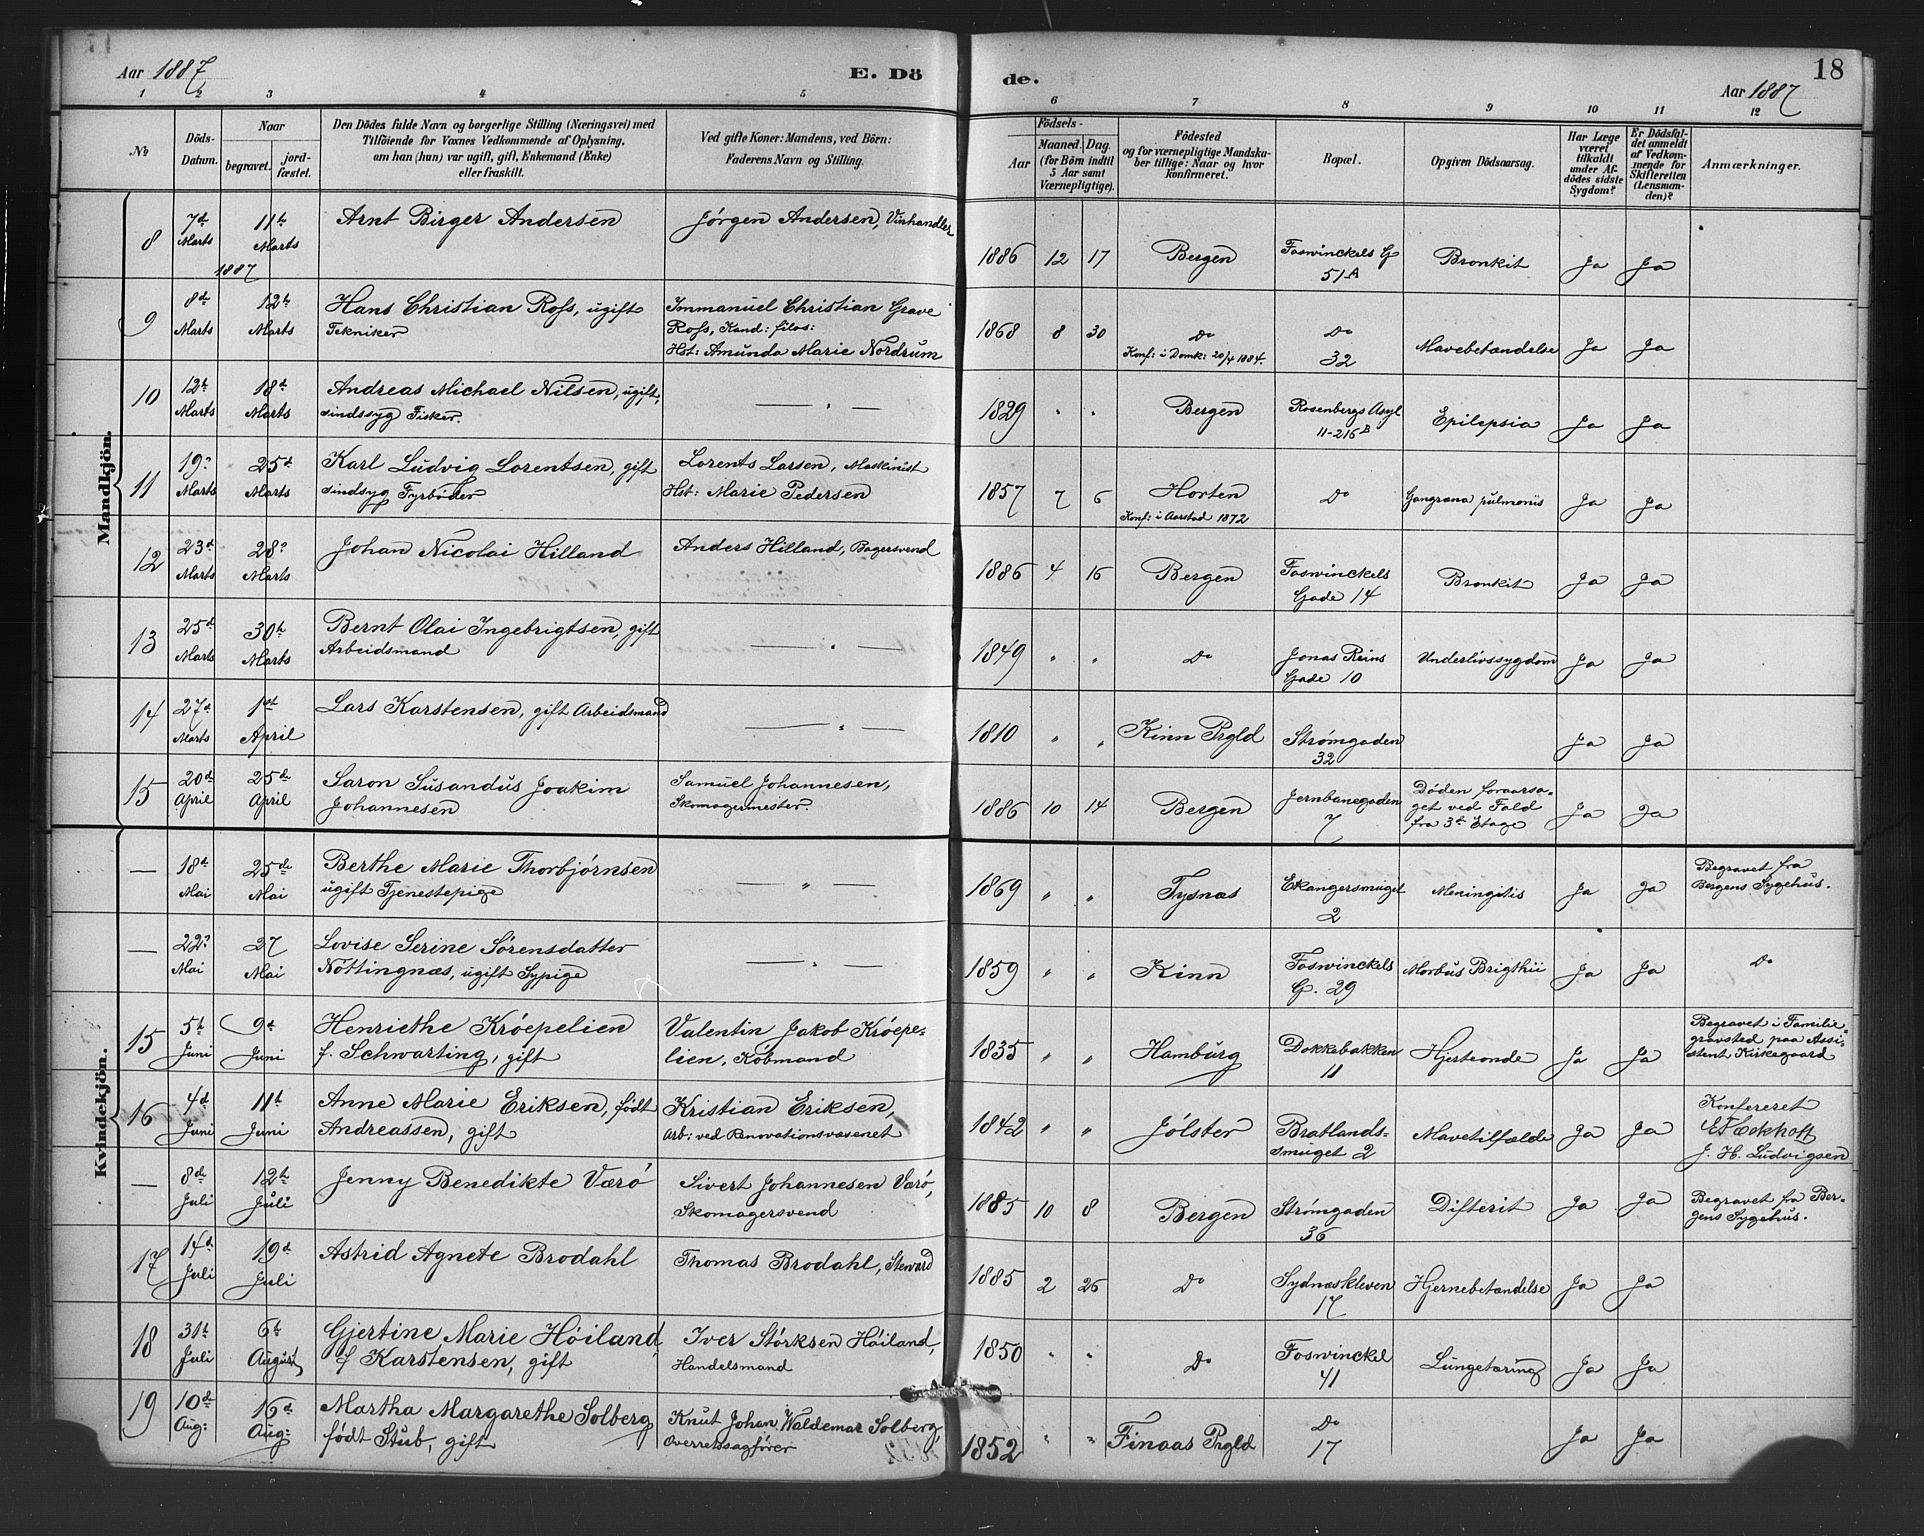 Aar 1887
E. Dö
de.
Aar 1887
18
1 2 3 4 5 6 7 8 9 10 11 12
No
Döds-Datum.
Naar
begravet.
jord-fæstet.
Den Dödes fulde Navn og borgerlige Stilling (Næringsvei) med
Tilföiende for Voxnes Vedkommende af Oplysning,
om han (hun) var ugift, gift, Enkemand (Enke)
eller fraskilt.
Ved gifte Koner: Mandens, ved Börn:
Faderens Navn og Stilling.
Födsels-
Aar
Maaned. Dag.
(for Börn indtil
5 Aar samt
Værnepligtige).
Födested
og for værnepligtige Mandska-
ber tillige: Naar og hvor
konfirmeret.
Bopæl.
Opgiven Dödsaarsag.
Har Læge
været
tilkaldt
under Af-
dödes sidste
Sygdom?
Er Dödsfal-
det anmeldt
af Vedkom-
mende for
Skifteretten
(Lensman-
den)?
Anmærkninger.
Mandkjön.
8 7d Marts 1887 11te Marts Arnt Birger Andersen Jörgen Andersen, Vinhandler 1886 12 17 Bergen Foswinckels G 51A Bronkit Ja Ja
9 8de Marts 12te Marts Hans Christian Ross, ugift Tekniker Immanuel Christian Grave Ross, Kand: filos: Hst: Amunda Marie Nordrum 1868 8 30 Do Konf: i Domk: 20/4 1884. Do 32 Mavebetændelse Ja Ja
10 12te Marts 18de Marts Andreas Michael Nilsen, ugift, sindssyg Fisker. — " — 1829 " " Bergen Rosenbergs Asyl 11-216B Epilepsia Ja Ja
11 19de Marts 25de Marts Karl Ludvig Lorentsen, gift sindsyg Fyrböder Lorents Larsen, Maskinist Hst: Marie Pedersen 1857 7 6 Horten Konf: i Aarstad 1872 Do Gangræna pulmoniis Ja Ja
12 23d Marts 28de Marts Johan Nicolai Hilland Anders Hilland, Bagersvend 1886 4 16 Bergen Foswinckels Gade 14 Bronkit Ja Ja
13 25d Marts 30te Marts Bernt Olai Ingebrigtsen, gift Arbeidsmand — " — 1849 " " Do Jonas Reins Gade 10 Underlivssygdom Ja Ja
14 27d Marts 1st April Lars Karstensen, gift Arbeidsmand — " — 1810 " " Kinn Prgld Strömgaden 32 Ja Ja
15 20d April 25de April Saron Susandus Joakim Johannesen Samuel Johannesen, Skomagermester. 1886 10 14 Bergen Jernbanegaden 7 Döden foraarsa-get ved Fald fra 3de Etage Ja Ja
Kvindekjön.
— 18de Mai 25de Mai Berthe Marie Thorbjörnsen ugift Tjenestepige — " — 1869 " " Tysnæs Ekangersmuget 2 Meningitis Ja Ja Begravet fra Bergens Sygehus.
— 22de Mai 27 Mai Lovise Serine Sörensdatter Nottingnæs, ugift Sypige — " — 1859 " " Kinn Foswinckels G. 29 Morbus Brigthii Ja Ja Do
15 5te Juni 9de Juni Henriethe Kröepelien f. Schwarting, gift Valentin Jakob Kröepe-lien, Köbmand 1835 " " Hamburg Dokkebakken 11 Hjerteonde Ja Ja Begravet i Familie-gravsted paa Assi-stent Kirkegaard
16 4d Juni 11te Juni Anne Marie Eriksen, född Andreassen, gift Kristian Eriksen, Arb: ved Renovationsvæsenet 1842 " " Jölster Bratlands-smuget 2 Mavetilfælde Ja Ja Konfereret Eckhoff J. H. Ludvigsen
— 8de Juli 12te Juli Jenny Benedikte Værö Sivert Johannesen Værö, Skomagersvend 1885 10 8 Bergen Strömgaden 36 Difterit Ja Ja Begravet fra Ber-gens Sygehus.
17 14d Juli 19d Juli Astrid Agnete Brodahl Thomas Brodahl, Steward 1885 2 26 Do Sydnæskleven 17 Hjernebetændelse Ja Ja
18 31te Juli 6te August Gjertine Marie Höiland, f Karstensen, gift Iver Störksen Höiland, Handelsmand 1850 " " Do Foswinckel 41 Lungetæring Ja Ja
19 10de Aug: 16d Aug: Martha Margarethe Solberg födt Stub, gift Knut Johan Waldemar Solberg, Overretssagförer 1852 " " Finaas Prgld Do 17 Ja Ja